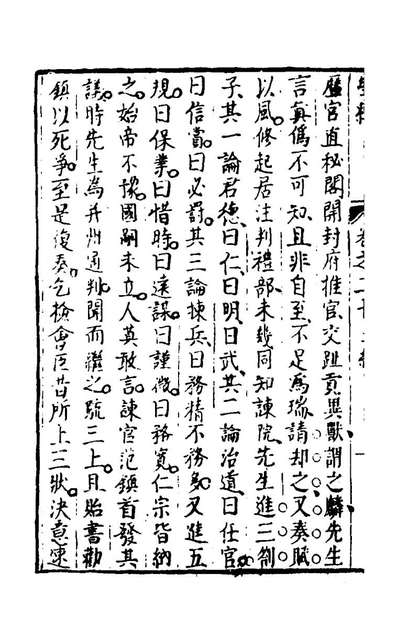 歷官直秘閣開封府推官交趾貢異獸謂之麟先生
言真僞不可知且非自至不足爲瑞請却之又奏賦
以風修起居注判禮部未幾同知諫院先生進三劄
子其一論君德曰仁曰明曰武其二論治道曰任官
曰信賞曰必罰其三論揀兵曰務精不務多又進五
規曰保業曰惜時曰遠謀曰謹微曰務實仁宗皆納
之始帝不豫國嗣未立人莫敢言諫官范鎮首發其
議時先生爲并州通判聞而繼之疏三上且貽書勸
鎮以死爭至是復奏乞檢會臣昔所上三狀決意速